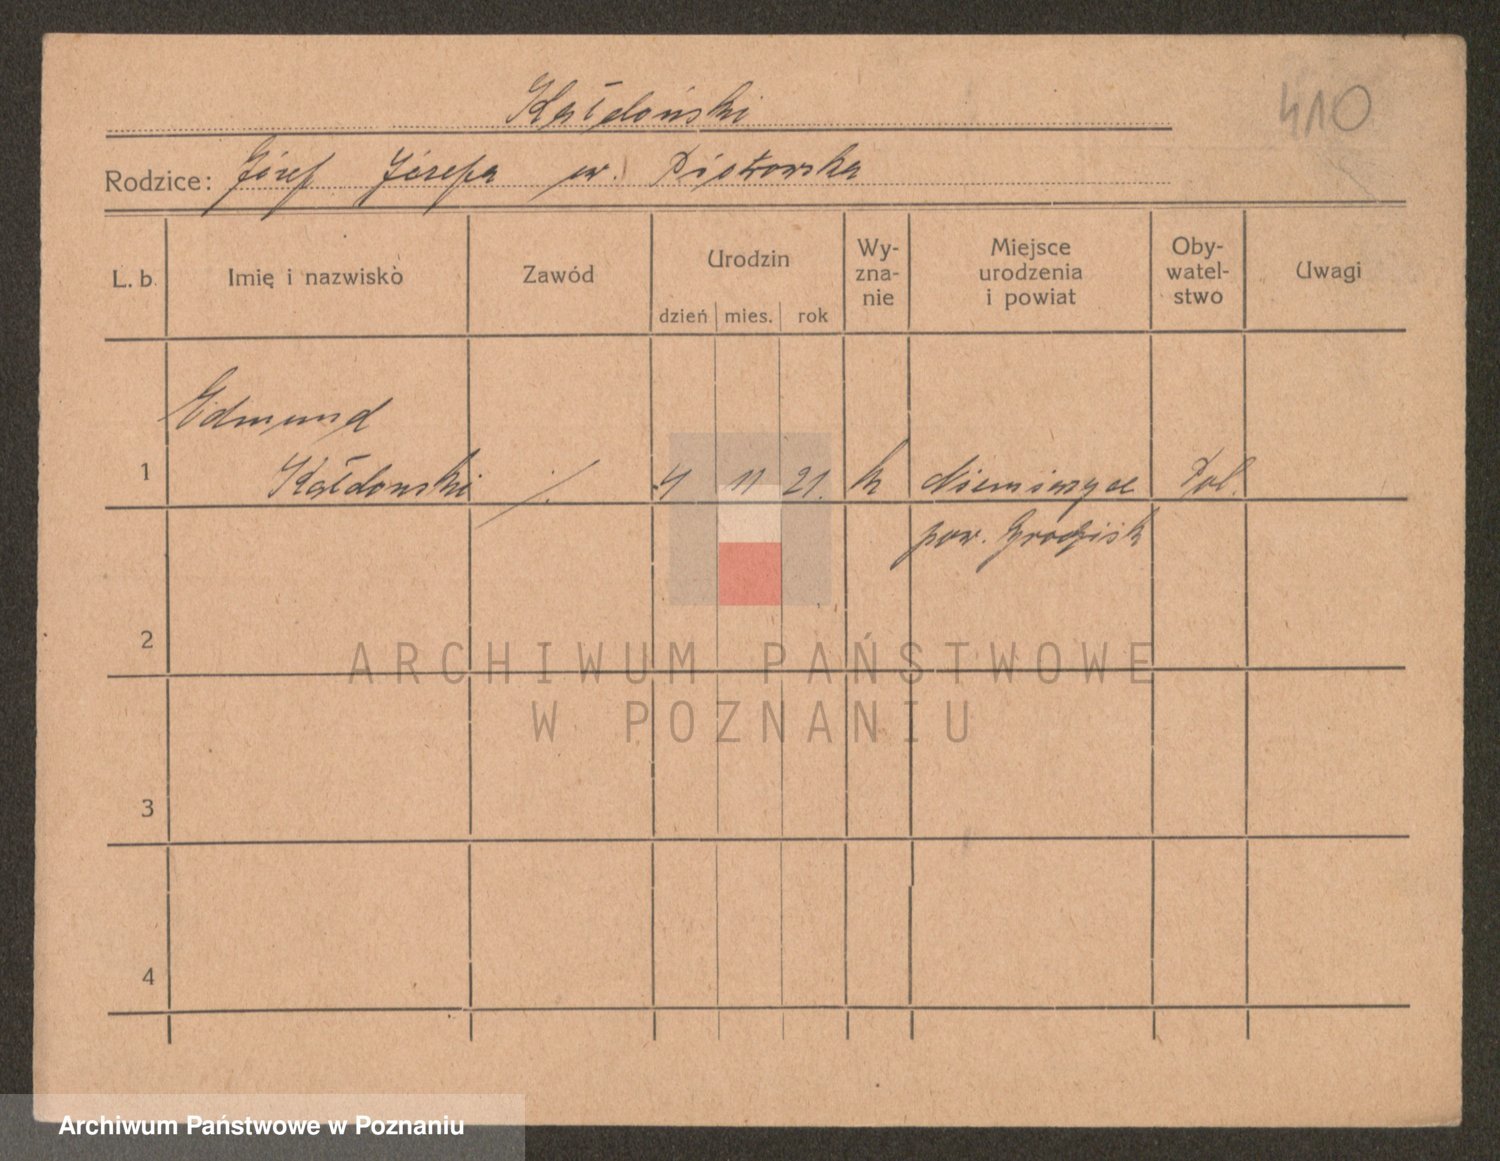 410
Kałdoński
Rodzice: Józef Józefa ur. Piotrowska
L. b. Imię i nazwisko Zawód Urodzin dzień mies. rok Wy-zna-nie Miejsce urodzenia i powiat Oby-watel-stwo Uwagi
Edmund
1 Kałdonski ./. 4 11 21. k Niemierzyce Pol.
pow. Grodzisk
2
ARCHIWUM PAŃSTWOWE
W POZNANIU
3
4
Archiwum Państwowe w Poznaniu